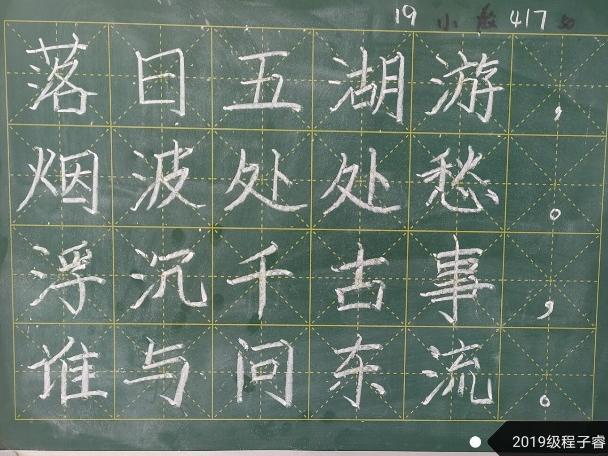 19 小教 417
落日五湖游，
烟波处处愁。
浮沉千古事，
谁与问东流。
2019级程子睿